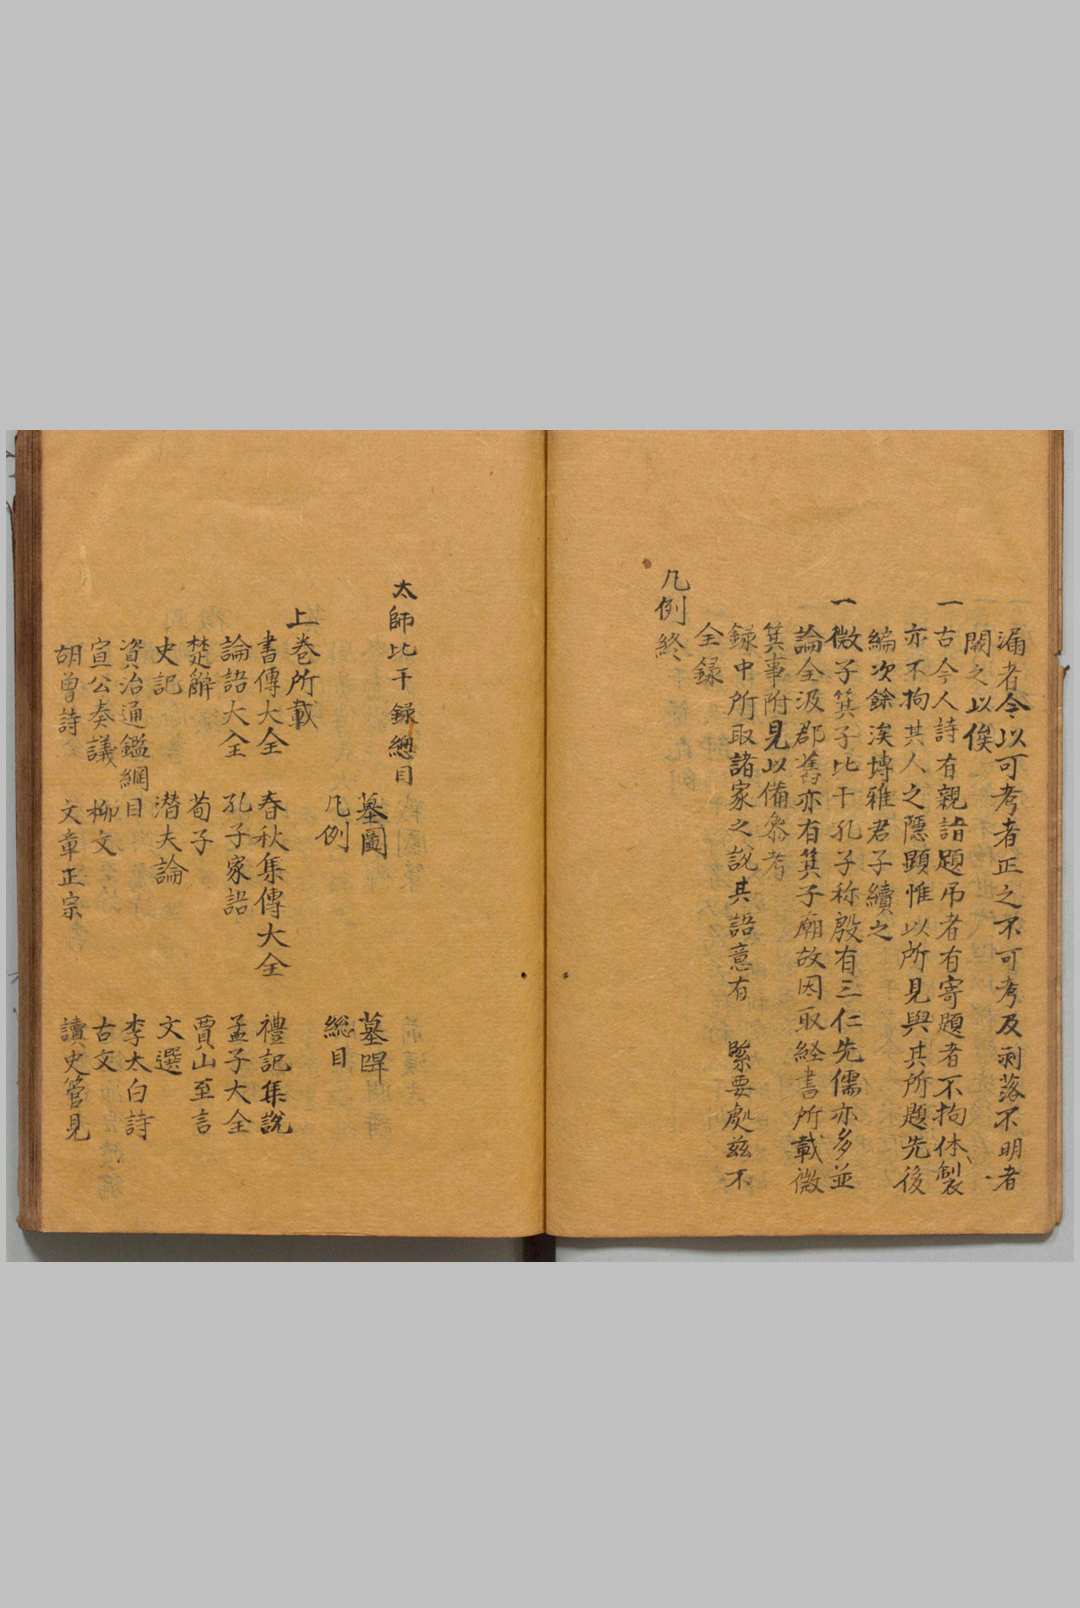 漏者今以可考者正之不可考及剥落不明者
闕之以俟
一古今人詩有親詣題吊者有寄題者不拘休製
亦不拘其人之隱顕惟以所見與其所題先後
編次餘俟博雅君子續之
一微子箕子比干孔子称殷有三仁先儒亦多並
論全汲郡舊亦有箕子廟故因取経書所載微
箕事附見以備叅考
録中所取諸家之説其語意有 緊要處兹不
全録
凡例終
太師比干錄總目
墓圖 墓睅
凡例 総目
上巻所載
書傳大全 春秋集傳大全 禮記集説
論語大全 孔子家語 孟子大全
楚辭 荀子 賈山至言
史記 潜夫論 文選
資治通鑑綱目 李太白詩
宣公奏議 柳文 古文
胡曽詩 文章正宗 讀史管見